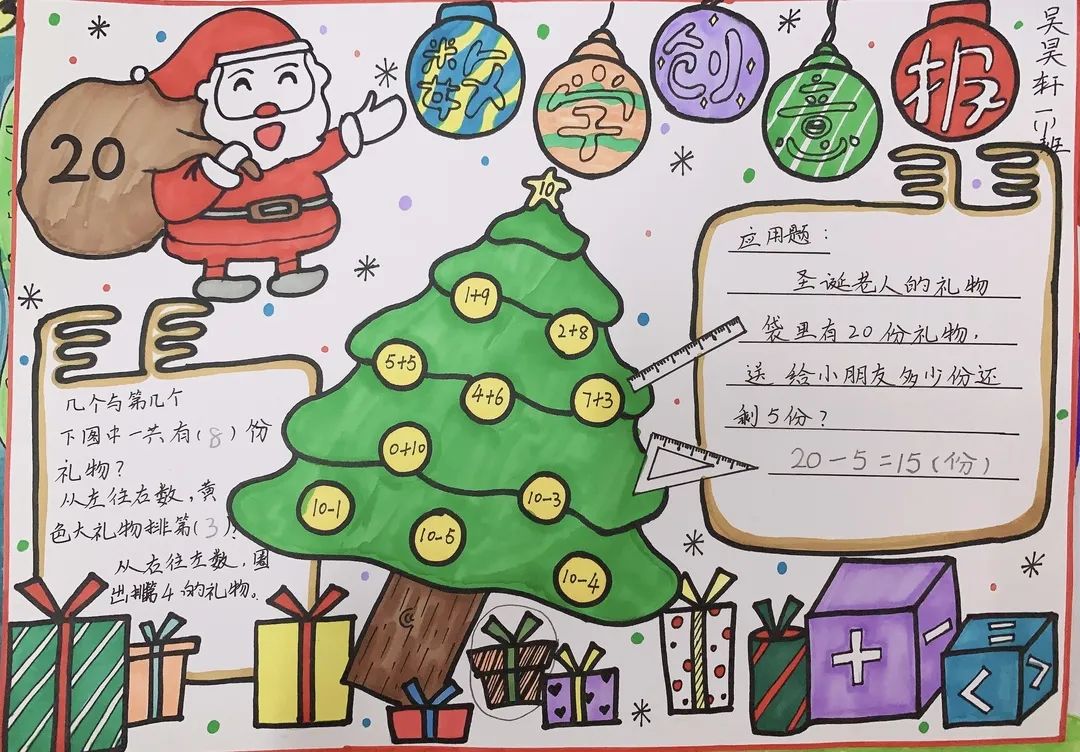 数学创意报
吴昊轩一(1)班
20
10
1+9
2+8
5+5
4+6
7+3
0+10
10-1
10-5
10-3
10-4
应用题:
圣诞老人的礼物
袋里有20份礼物,
送给小朋友多少份还
剩5份?
20-5=15(份)
几个与第几个
下图中一共有(8)份
礼物?
从左往右数,黄
色大礼物排第(3)?
从右往左数,圈
出排第4的礼物。
+
-
=
<
>